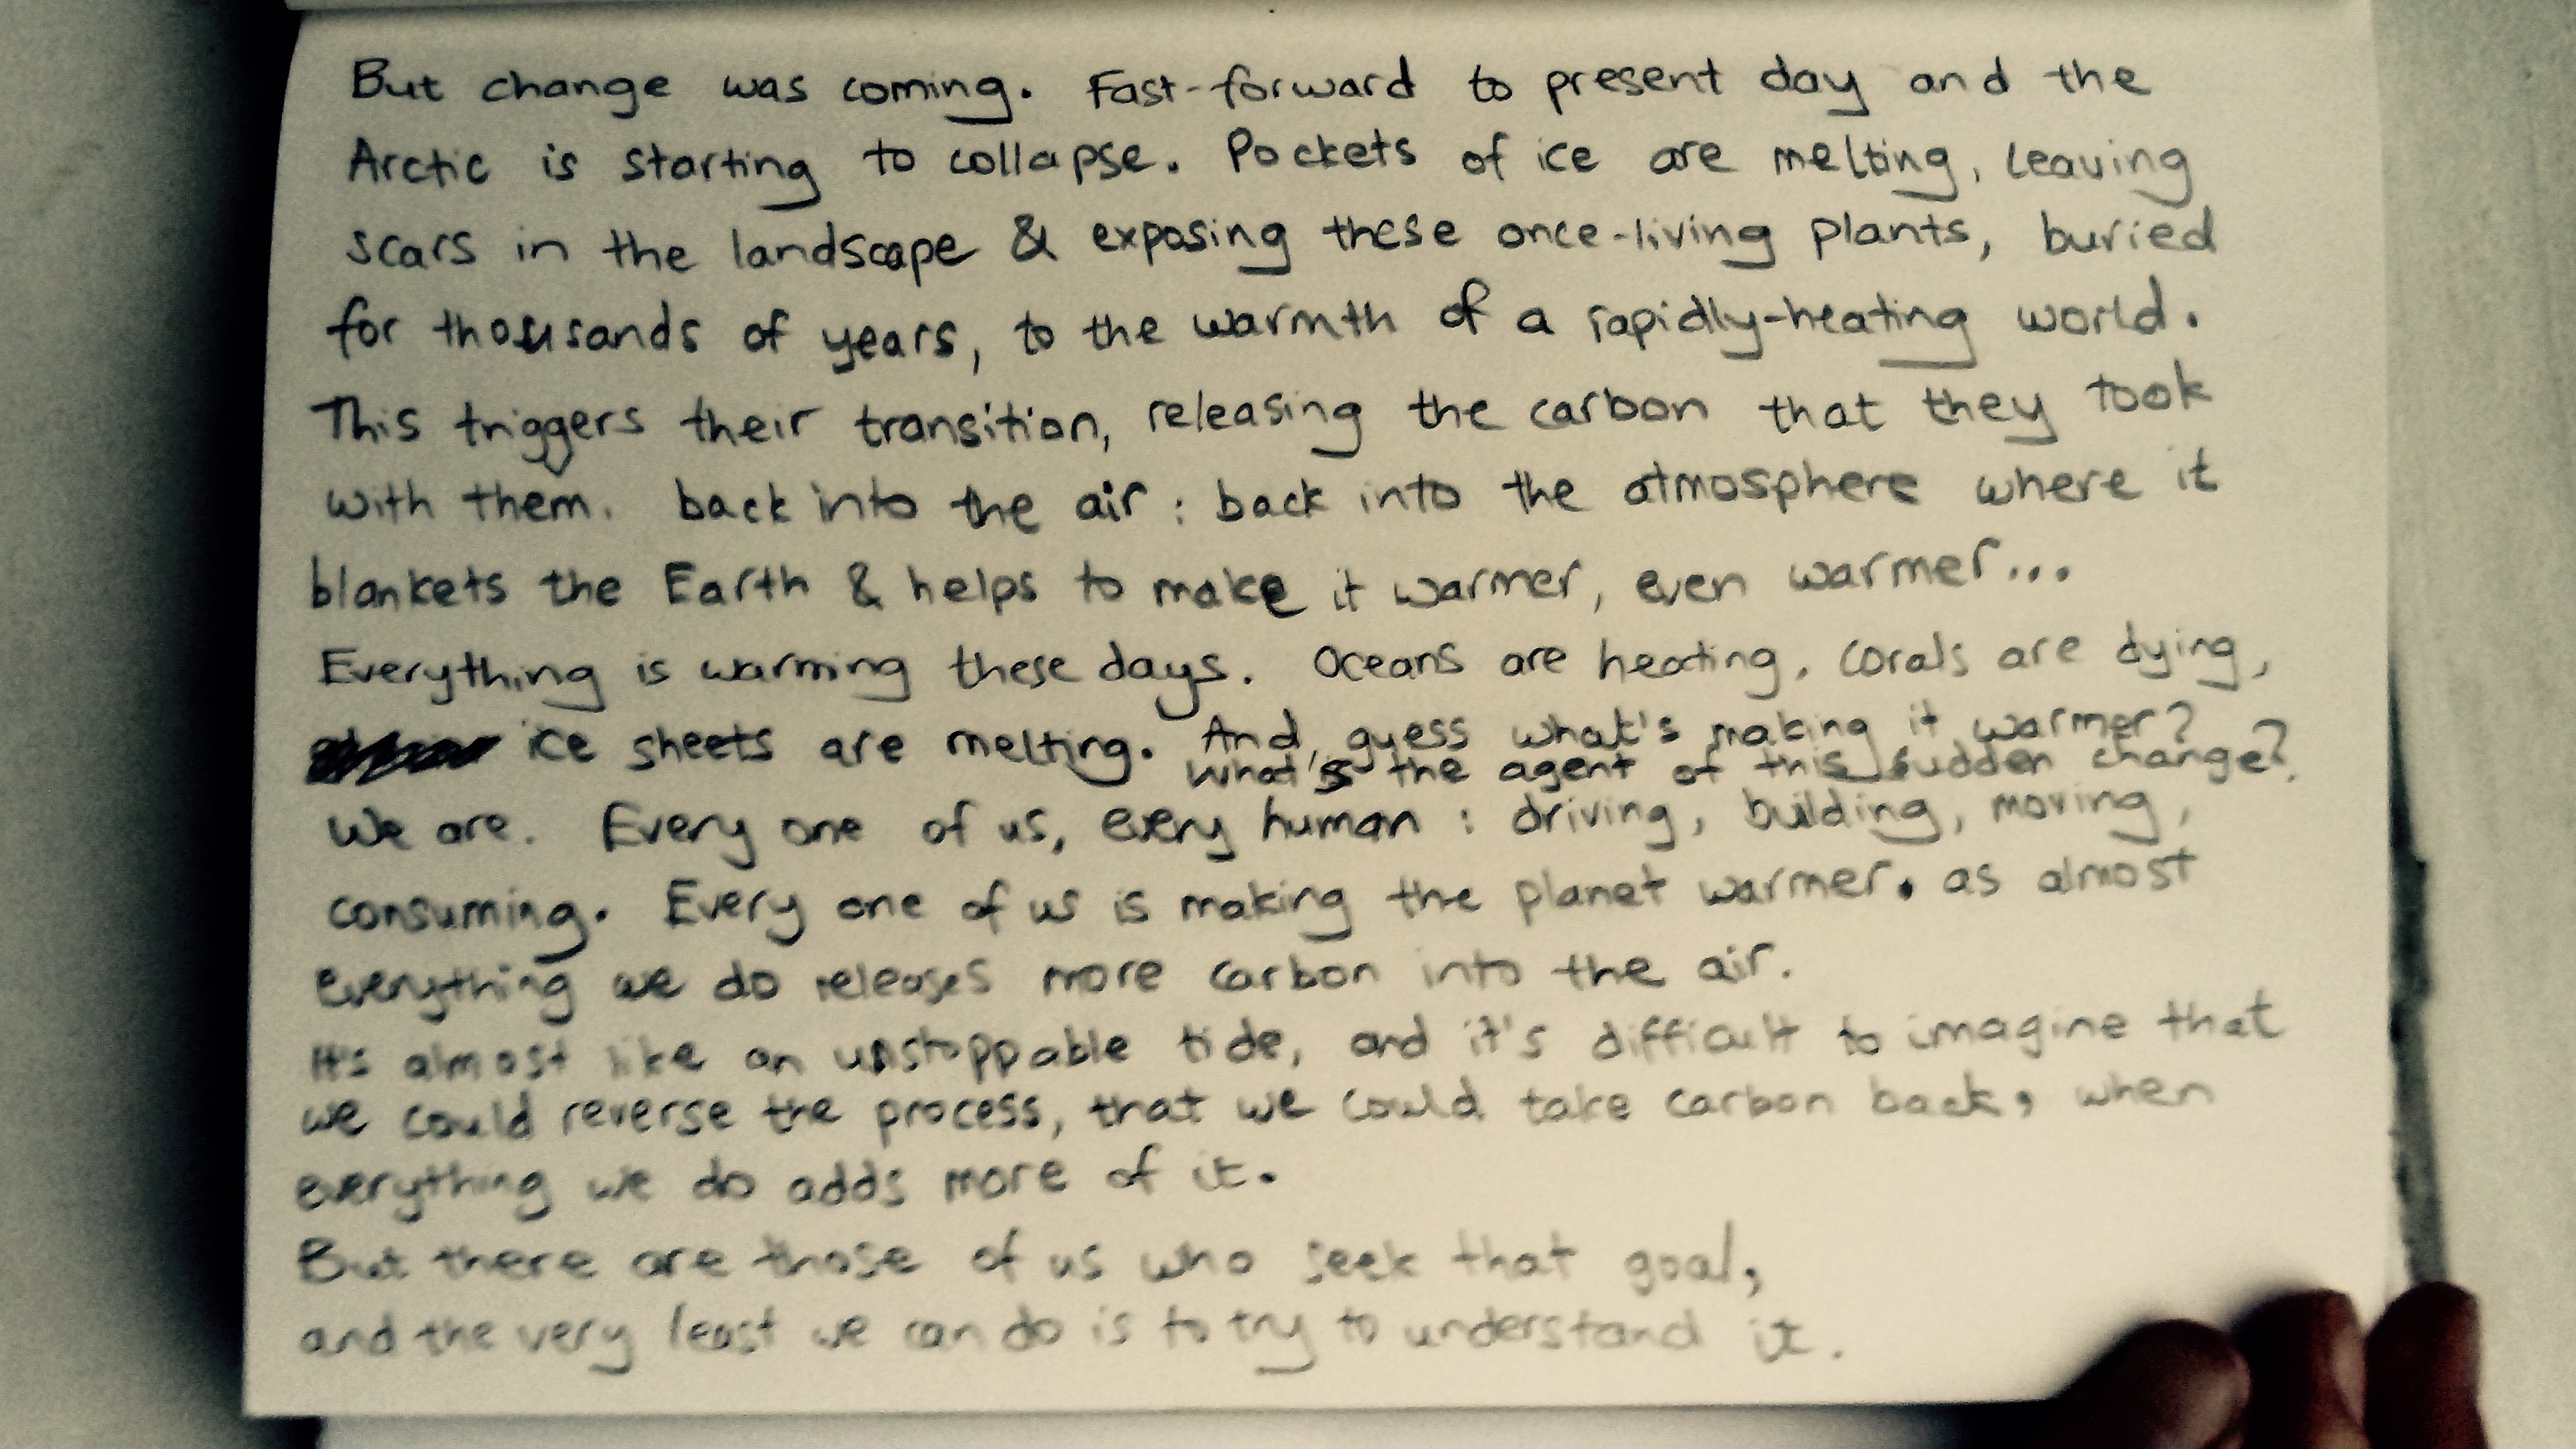 But change was coming. Fast-forward to present day and the
Arctic is starting to collapse. Pockets of ice are melting, leaving
scars in the landscape & exposing these once-living plants, buried
for thousands of years, to the warmth of a rapidly-heating world.
This triggers their transition, releasing the carbon that they took
with them. back into the air : back into the atmosphere where it
blankets the Earth & helps to make it warmer, even warmer...
Everything is warming these days. Oceans are heating, corals are dying,
ice sheets are melting. And, guess what's making it warmer?
What's the agent of this sudden change?
We are. Every one of us, every human : driving, building, moving,
consuming. Every one of us is making the planet warmer. as almost
everything we do releases more carbon into the air.
It's almost like an unstoppable tide, and it's difficult to imagine that
we could reverse the process, that we could take carbon back, when
everything we do adds more of it.
But there are those of us who seek that goal,
and the very least we can do is to try to understand it.